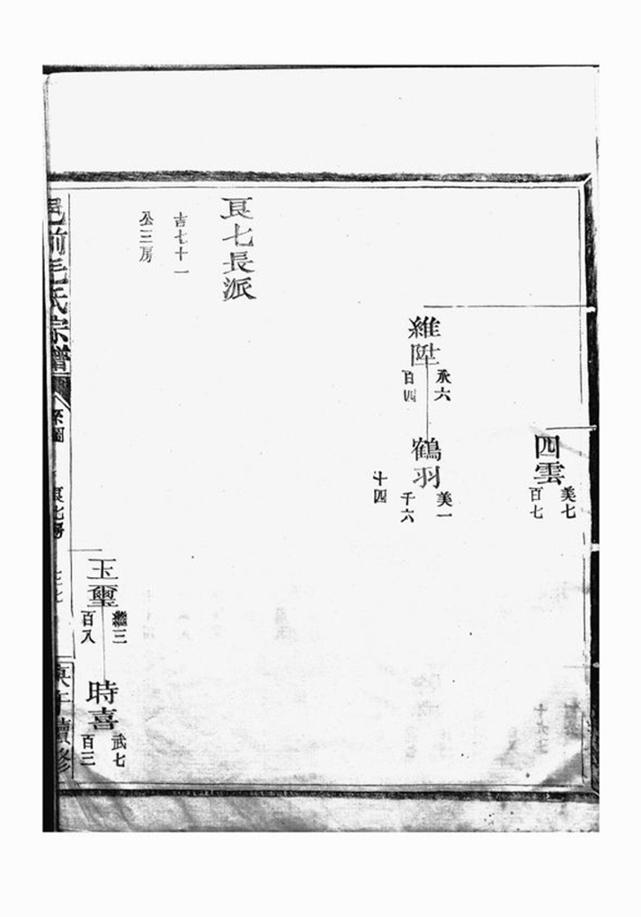 四雲
美七
百七
維陞
承六
百四
鶴羽
美一
千六
十四
良七長派
吉七十一
公三房
玉璽
繼三
百八
時喜
武七
百三
邑前毛氏宗譜
系圖
良七房
庚午續修